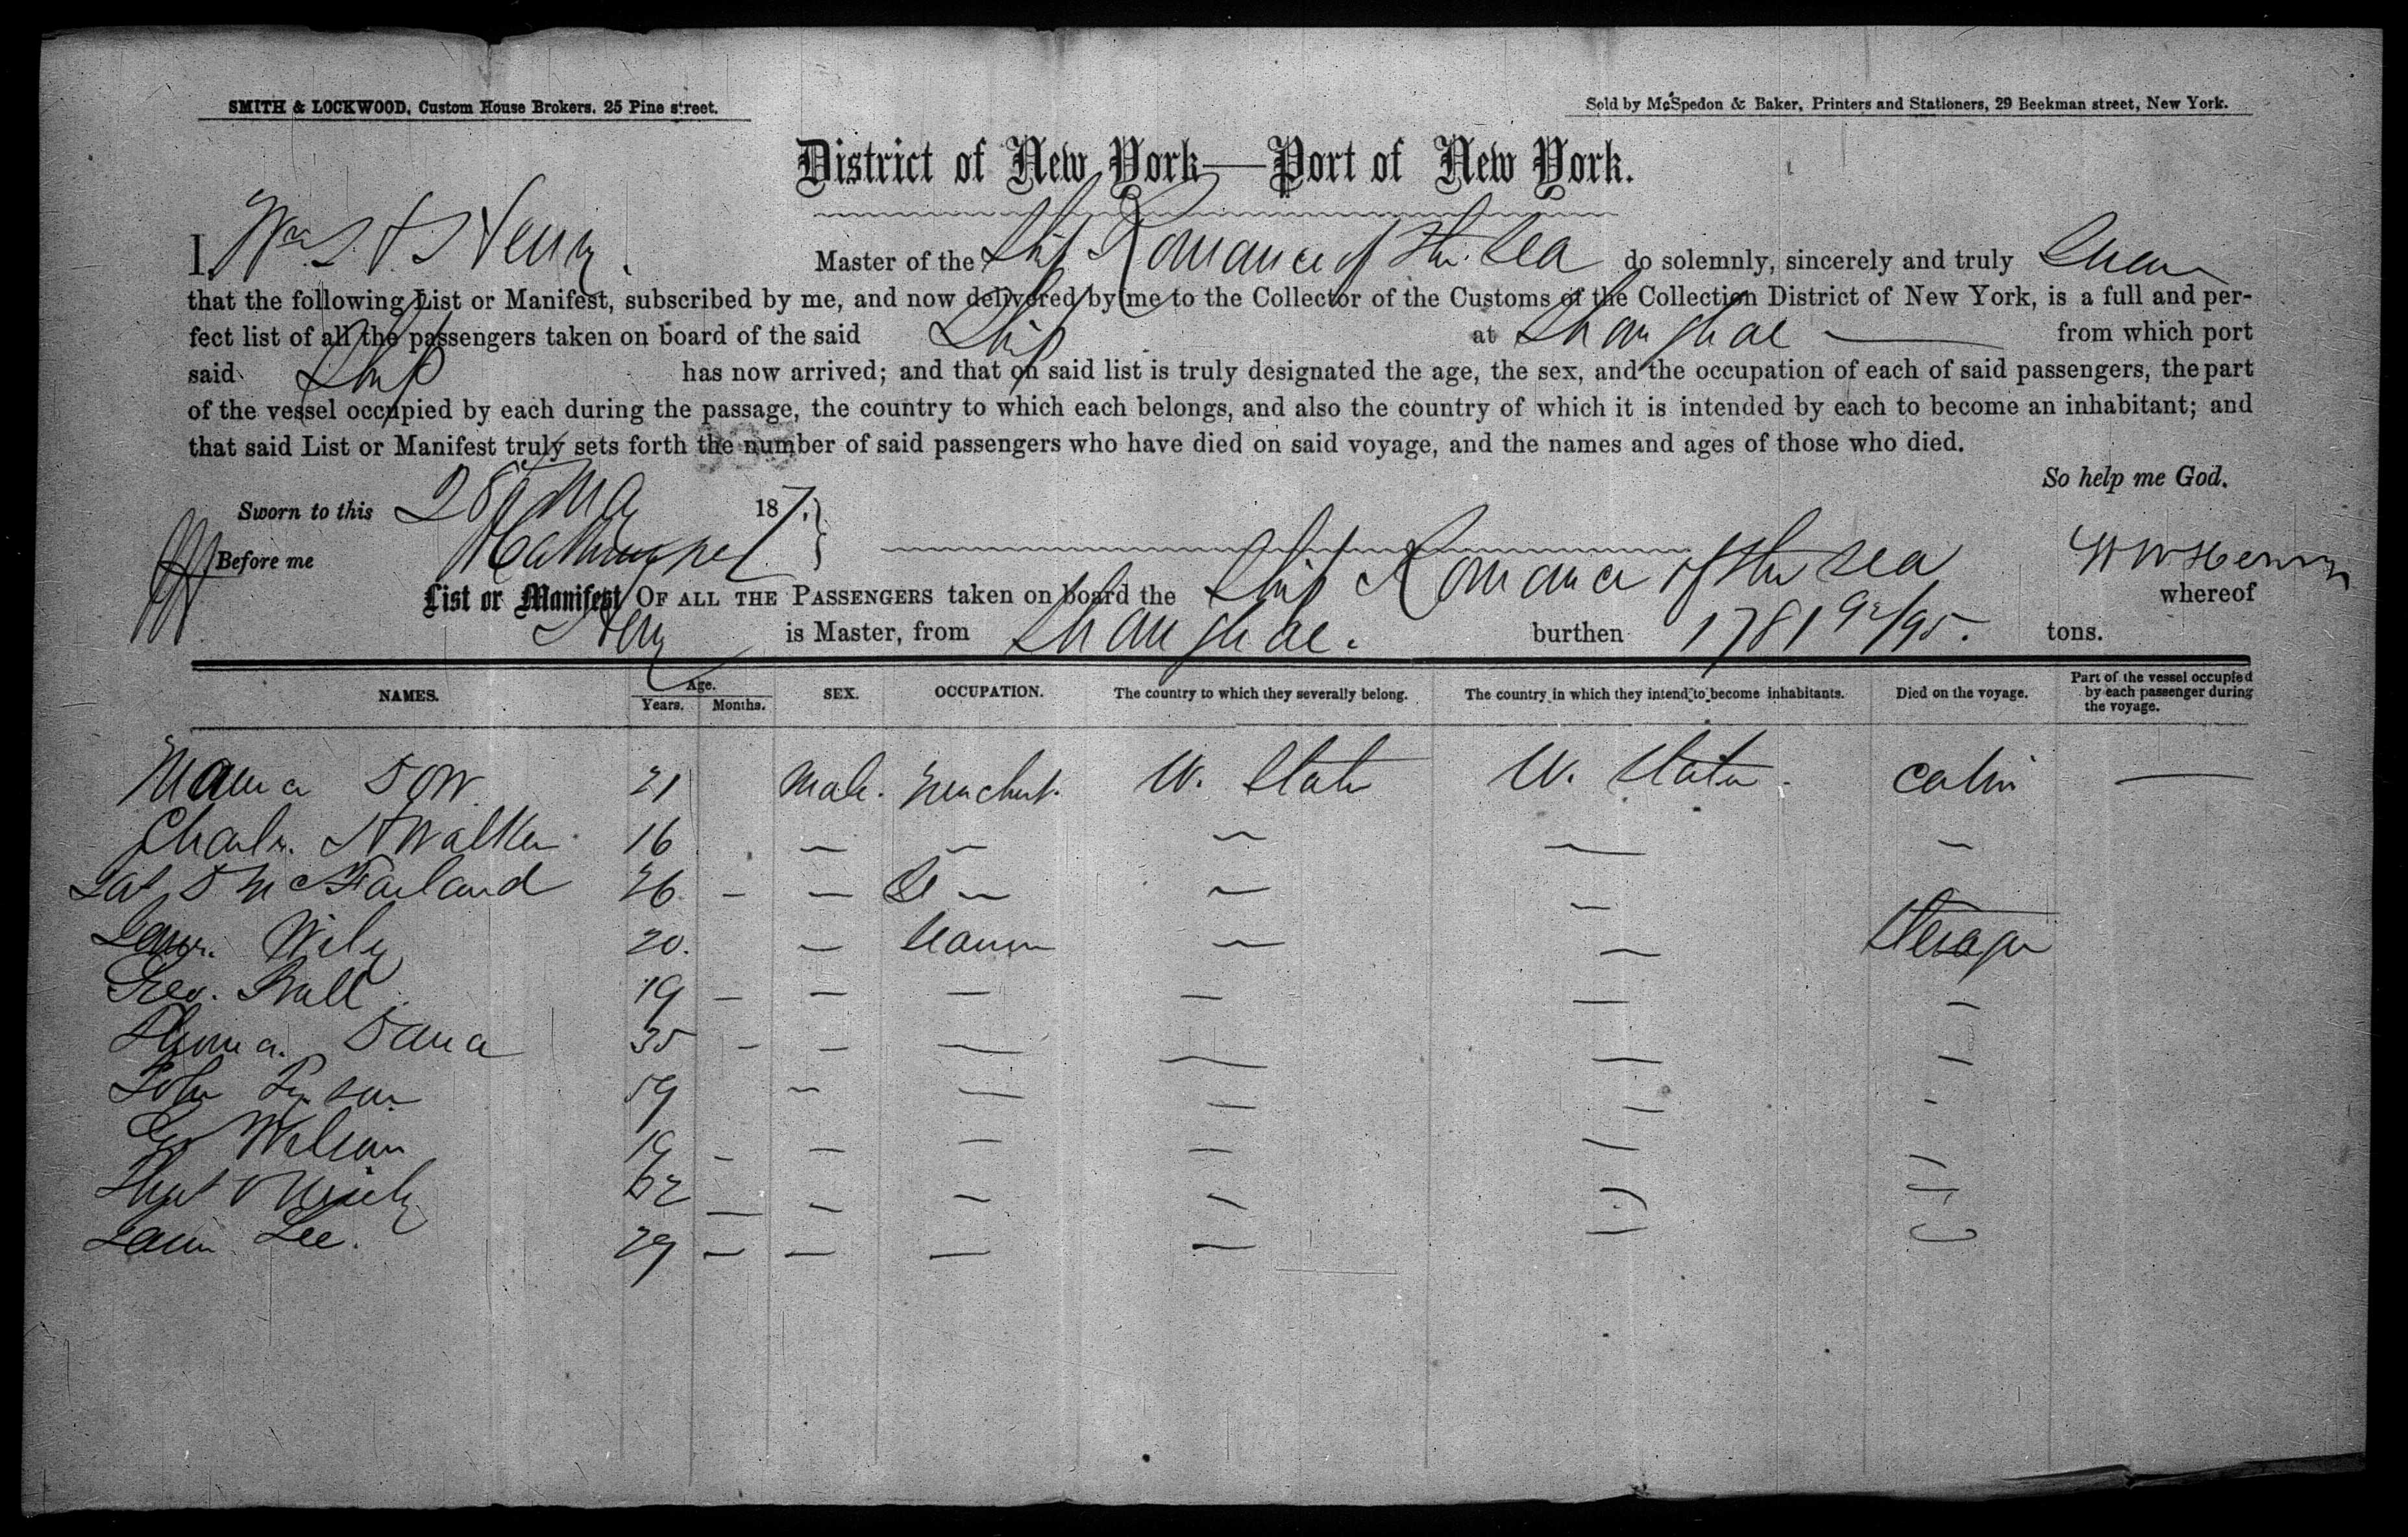 SMITH & LOCKWOOD, Custom House Brokers, 25 Pine street.
Sold by McSpedon & Baker, Printers and Stationers, 29 Beekman street, New York.
District of New York—Port of New York.
I, Wm Henry Master of the Ship Romance of the Sea do solemnly, sincerely and truly Swear
that the following List or Manifest, subscribed by me, and now delivered by me to the Collector of the Customs of the Collection District of New York, is a full and per-
fect list of all the passengers taken on board of the said Ship at Shanghae from which port
said Ship has now arrived; and that on said list is truly designated the age, the sex, and the occupation of each of said passengers, the part
of the vessel occupied by each during the passage, the country to which each belongs, and also the country of which it is intended by each to become an inhabitant; and
that said List or Manifest truly sets forth the number of said passengers who have died on said voyage, and the names and ages of those who died.
So help me God.
Sworn to this 28 185
Before me
W W Henry
List or Manifest OF ALL THE PASSENGERS taken on board the Ship Romance of the Sea whereof
Henry is Master, from Shanghae. burthen 1781 92/95. tons.
NAMES. Age. Years. Months. SEX. OCCUPATION. The country to which they severally belong. The country in which they intend to become inhabitants. Died on the voyage. Part of the vessel occupied by each passenger during the voyage.
21 Male. Merchant. U. States U. States. Cabin —
Charles H Walker 16 — — — — —
McFarland 26 — — — — —
Wiley 20. — Seaman — — Steerage
Geo. Ball 19 — — — — — —
Thomas Dana 35 — — — — — —
John 19 — — — — —
Geo Wilson 19 — — — — — —
62 — — — — —
Lee. 29 — — — —